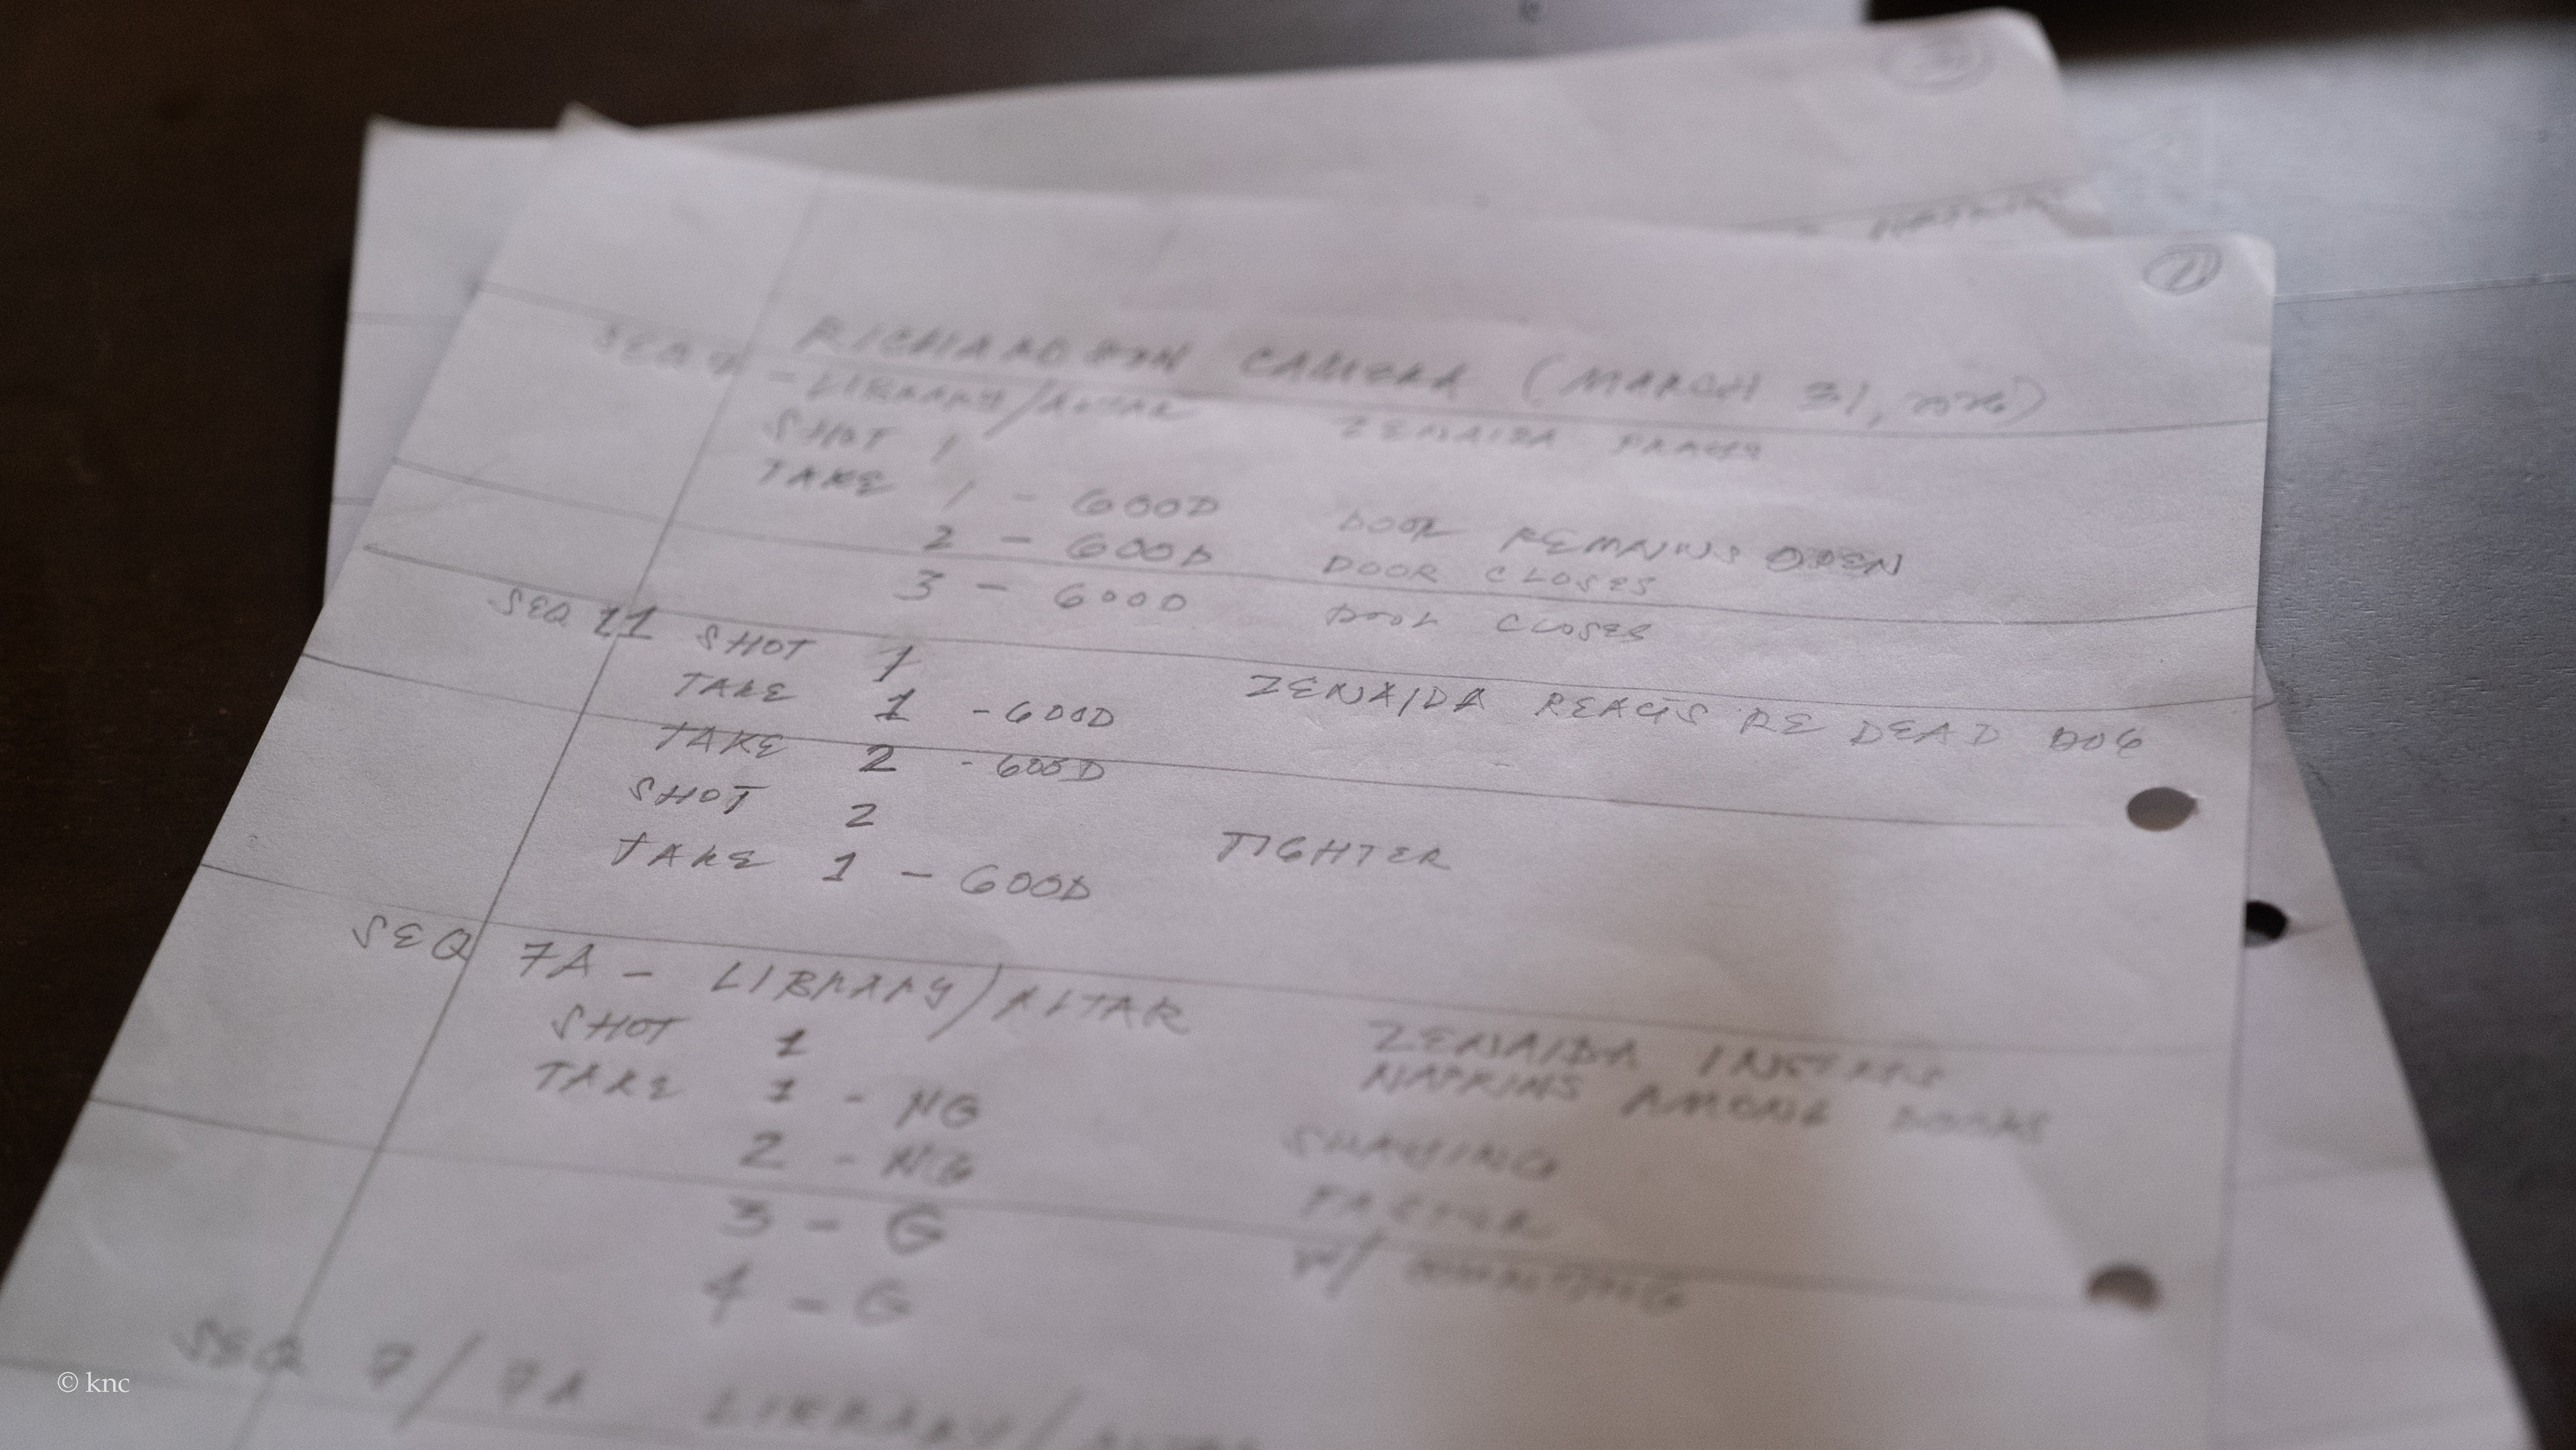 2
RICHARDSON CAMERA (MARCH 31,
SEQ 7 - LIBRARY/ALTAR ZENAIDA PRAYS
SHOT 1
TAKE 1 - GOOD DOOR REMAINS OPEN
2 - GOOD DOOR CLOSES
3 - GOOD DOOR CLOSES
SEQ 11 SHOT 1
TAKE 1 - GOOD ZENAIDA REACTS RE DEAD DOG
TAKE 2 - GOOD
SHOT 2
TAKE 1 - GOOD TIGHTER
SEQ 7A - LIBRARY/ALTAR
SHOT 1 ZENAIDA INSERTS
TAKE 1 - NG NAPKINS AMONG BOOKS
2 - NG SWAYING
3 - G FASTER
4 - G W/
SEQ 7/7A LIBRARY/ALTAR
© knc